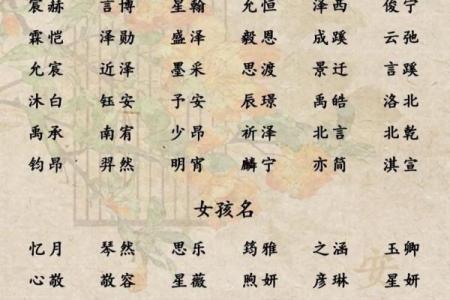 宸赫 言博 星翰 允恒 泽西 俊宁
霖恺 泽勋 盛泽 毅恩 成蹊 云弛
允宸 近泽 墨采 思渡 景迁 言蹊
沐白 钰安 子安 辰璟 禹皓 洛北
禹承 南宥 少昂 祈泽 北言 北乾
钧昂 羿然 明宵 麟宁 亦简 淇宣
女孩名
忆月 琴然 思乐 筠雅 之涵 玉卿
心敬 敬容 星薇 煦妍 彦琳 星妍